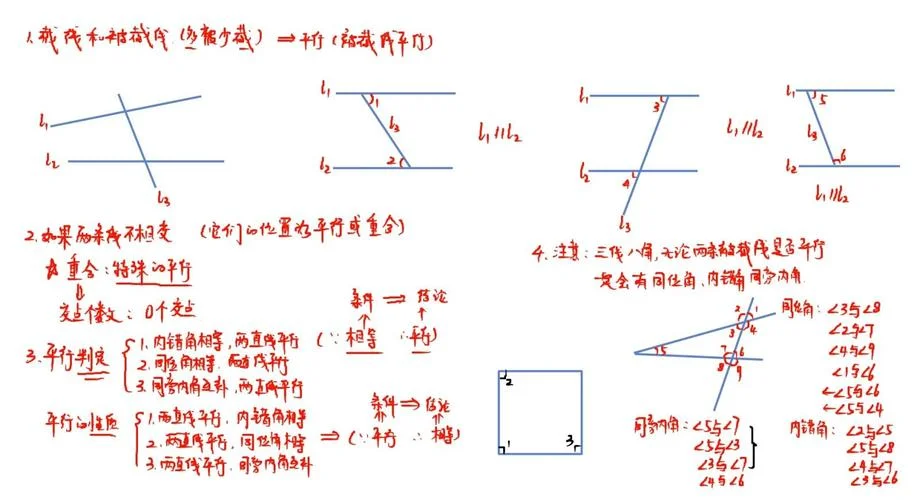 1. 截线和被截线 (多截少截) ⇒ 平行 (被截线平行)
l₁
l₂
l₃
l₁
1
l₃
2
l₂
l₁∥l₂
l₁
3
l₂
4
l₃
l₁∥l₂
l₁
5
l₃
6
l₂
l₁∥l₂
2. 如果两条线不相交 (它们的位置为平行或重合)
☆ 重合: 特殊的平行
⇓
交点个数: 0个交点
3. 平行判定
1. 内错角相等, 两直线平行
2. 同位角相等, 两直线平行
3. 同旁内角互补, 两直线平行
条件 ⇒ 结论
(∵ 相等 ∴ 平行)
平行的性质
1. 两直线平行, 内错角相等
2. 两直线平行, 同位角相等
3. 两直线平行, 同旁内角互补
⇒ (∵ 平行 ∴ 相等)
条件 ⇒ 结论
2
1
3
4. 注意: 三线八角, 无论两条被截线是否平行
一定会有同位角、内错角同旁内角
2
1
3
4
5
7
6
8
9
同位角: ∠3与∠8
∠2与∠7
∠4与∠9
∠1与∠6
←∠5与∠6
←∠5与∠4
同旁内角: ∠5与∠7
∠5与∠3
∠3与∠7
∠4与∠6
内错角: ∠2与∠5
∠5与∠8
∠4与∠7
∠3与∠6